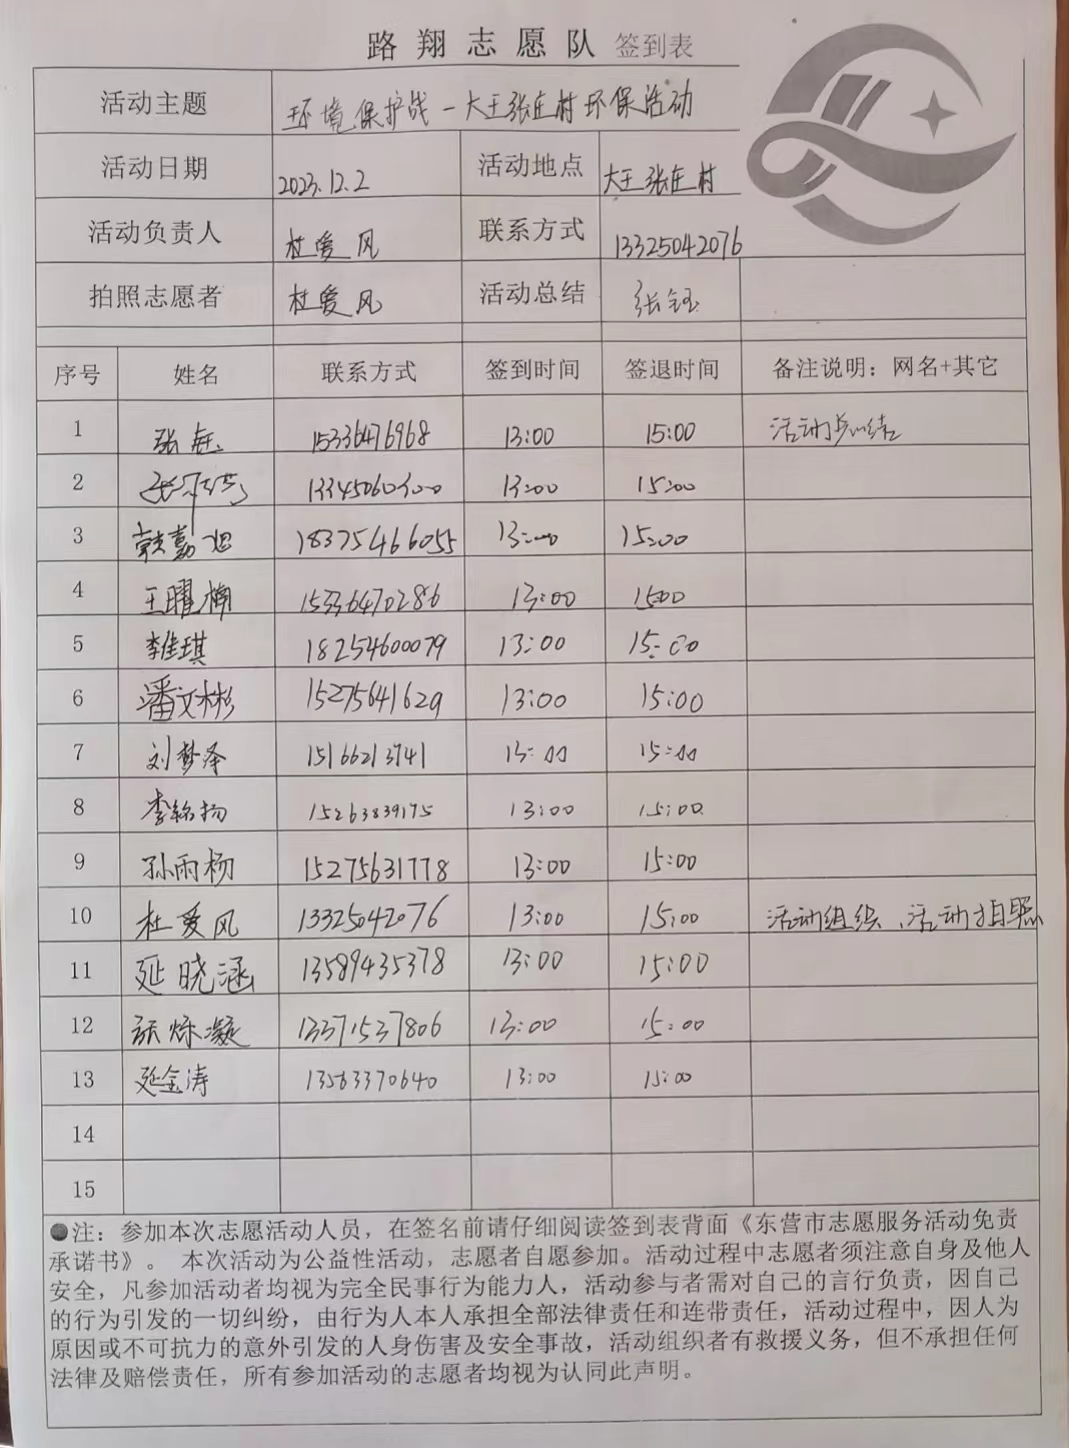 路翔志愿队 签到表
活动主题 环境保护战-大王张庄村环保活动
活动日期 2023.12.2 活动地点 大王张庄村
活动负责人 杜爱风 联系方式 13325042076
拍照志愿者 杜爱风 活动总结 张钰
序号 姓名 联系方式 签到时间 签退时间 备注说明：网名+其它
1 张钰 15336476968 13:00 15:00 活动总结
2 13:00 15:00
3 18375466055 13:00 15:00
4 王曜楠 15336470286 13:00 1500
5 李佳琪 18254600079 13:00 15:00
6 潘文彬 15275641629 13:00 15:00
7 刘梦泽 15166213741 13:00 15:00
8 李铭扬 15263839175 13:00 15:00
9 孙雨杨 15275631778 13:00 15:00
10 杜爱风 13325042076 13:00 15:00 活动组织、活动拍照
11 延晓涵 13589435378 13:00 15:00
12 张烁凝 13371537806 13:00 15:00
13 延金涛 13563370640 13:00 15:00
14
15
●注：参加本次志愿活动人员，在签名前请仔细阅读签到表背面《东营市志愿服务活动免责
承诺书》。 本次活动为公益性活动，志愿者自愿参加。活动过程中志愿者须注意自身及他人
安全，凡参加活动者均视为完全民事行为能力人，活动参与者需对自己的言行负责，因自己
的行为引发的一切纠纷，由行为人本人承担全部法律责任和连带责任，活动过程中，因人为
原因或不可抗力的意外引发的人身伤害及安全事故，活动组织者有救援义务，但不承担任何
法律及赔偿责任，所有参加活动的志愿者均视为认同此声明。